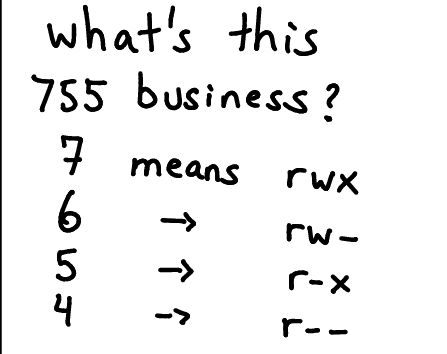 what's this
755 business?
7 means rwx
6 → rw-
5 → r-x
4 -> r--